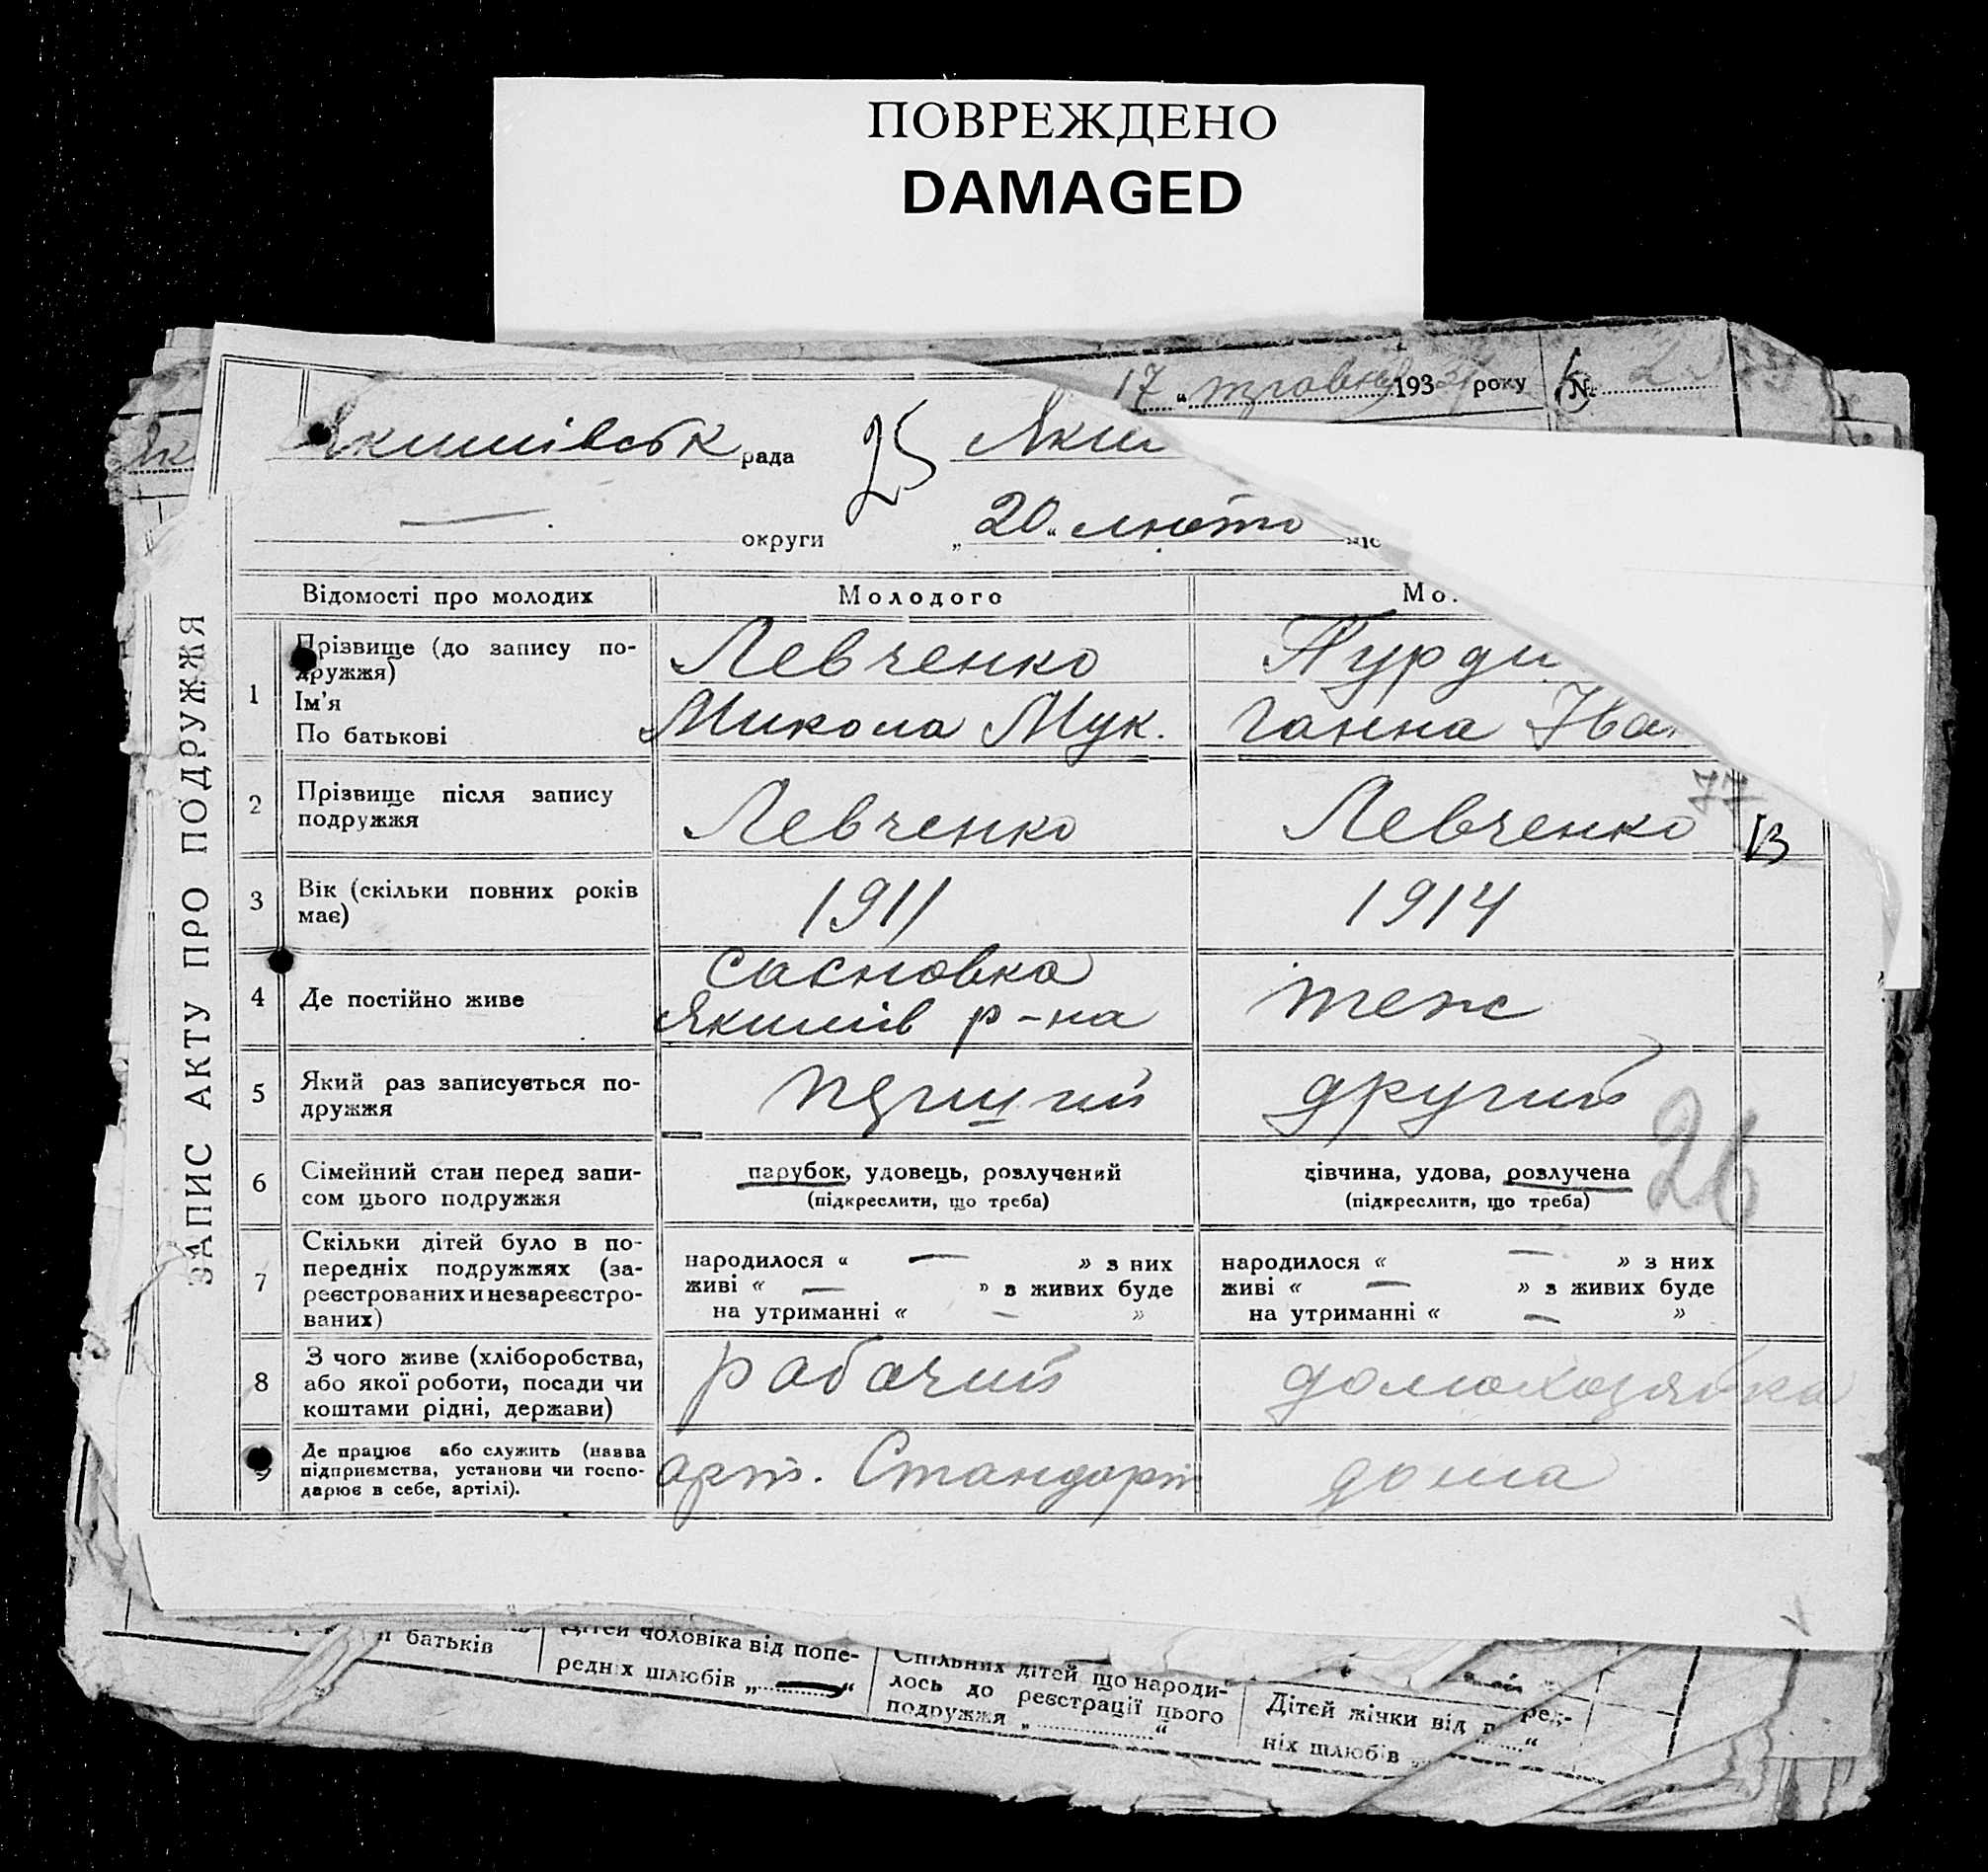 ПОВРЕЖДЕНО
DAMAGED
17 „ 193 року №
Якимівськ рада 25 Яким
— округи „20“ люто
ЗАПИС АКТУ ПРО ПОДРУЖЖЯ
Відомості про молодих Молодого Мо
1 Прізвище (до запису по-
дружжя)
Левченко
Ім'я
По батькові
Микола Мук. Ганна Іван
77
2 Прізвище після запису
подружжя
Левченко Левченко
3 Вік (скільки повних років
має)
1911 1914
4 Де постійно живе
Сасновка
Якимів р-на
теж
5 Який раз записується по-
дружжя
другий
26
6 Сімейний стан перед запи-
сом цього подружжя
парубок, удовець, розлучений
(підкреслити, що треба)
дівчина, удова, розлучена
(підкреслити, що треба)
7 Скільки дітей було в по-
передніх подружжях (за-
реєстрованих и незареєстро-
ваних)
народилося « — » з них
живі « — » з живих буде
на утриманні « — »
народилося « — » з них
живі « — » з живих буде
на утриманні « — »
8 З чого живе (хліборобства,
або якої роботи, посади чи
коштами рідні, держави)
рабочий домохозяйка
9 Де працює або служить (назва
підприємства, установи чи госпо-
дарює в себе, артілі).
арт. Стандарт дома
батьків
Дітей чоловіка від попе-
редніх шлюбів „ — “
Спільних дітей що народи-
лось до реєстрації цього
подружжя „ “
Дітей жінки від п ред-
ніх шлюбів „ “